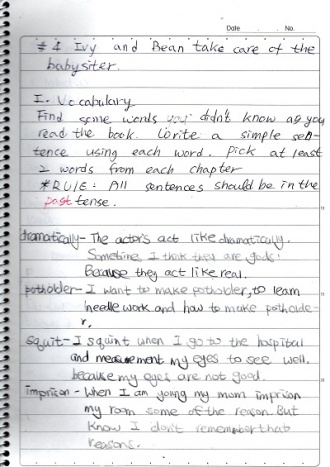 Date . . No.
# 4 Ivy and Bean take care of the
babysiter.
I. Vocabulary
Find some words you didn't know as you
read the book. Write a simple sen-
tence using each word. Pick at least
2 words from each chapter
*RULE: All sentences should be in the
past tense.
dramatically - The actors act like dramatically.
Sometime I think they are gods!
Because they act like real.
potholder - I want to make potholder, to learn
needle work and how to make potholde-
r,
Squit - I squint when I go to the hospital
and measurement my eyes to see well.
because my eyes are not good.
imprison - When I am young my mum imprison
my room some of the reason. But
know I don't remember that
reasons.